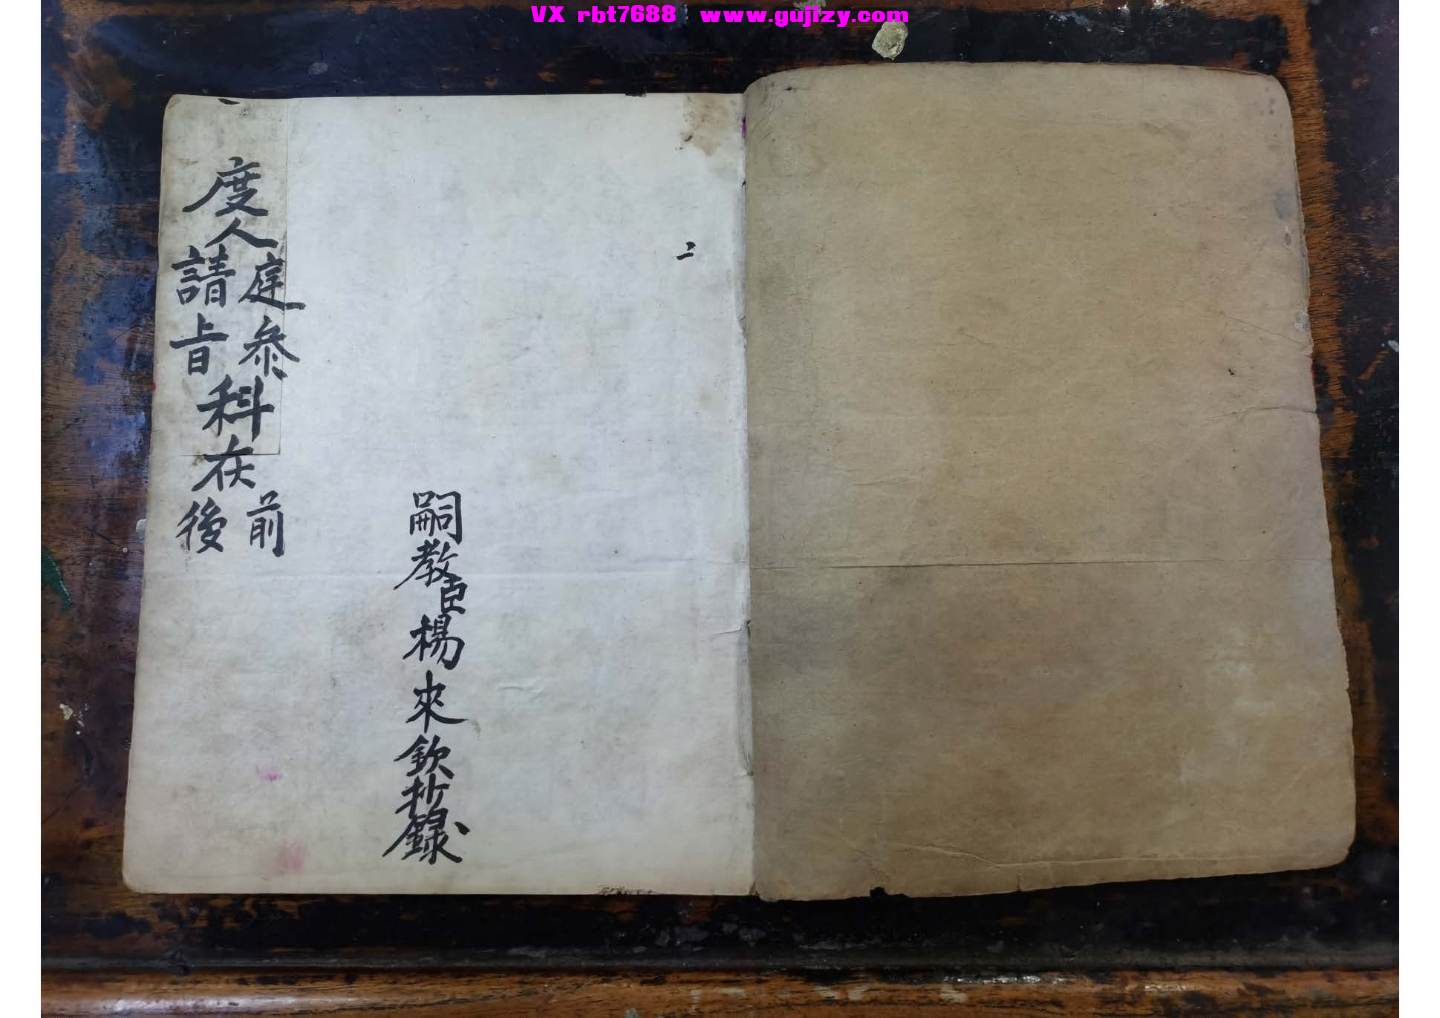 VX rbt7688 www.gujizy.com
二
嗣教臣楊來欽抄錄
度人庭參請旨科在前後